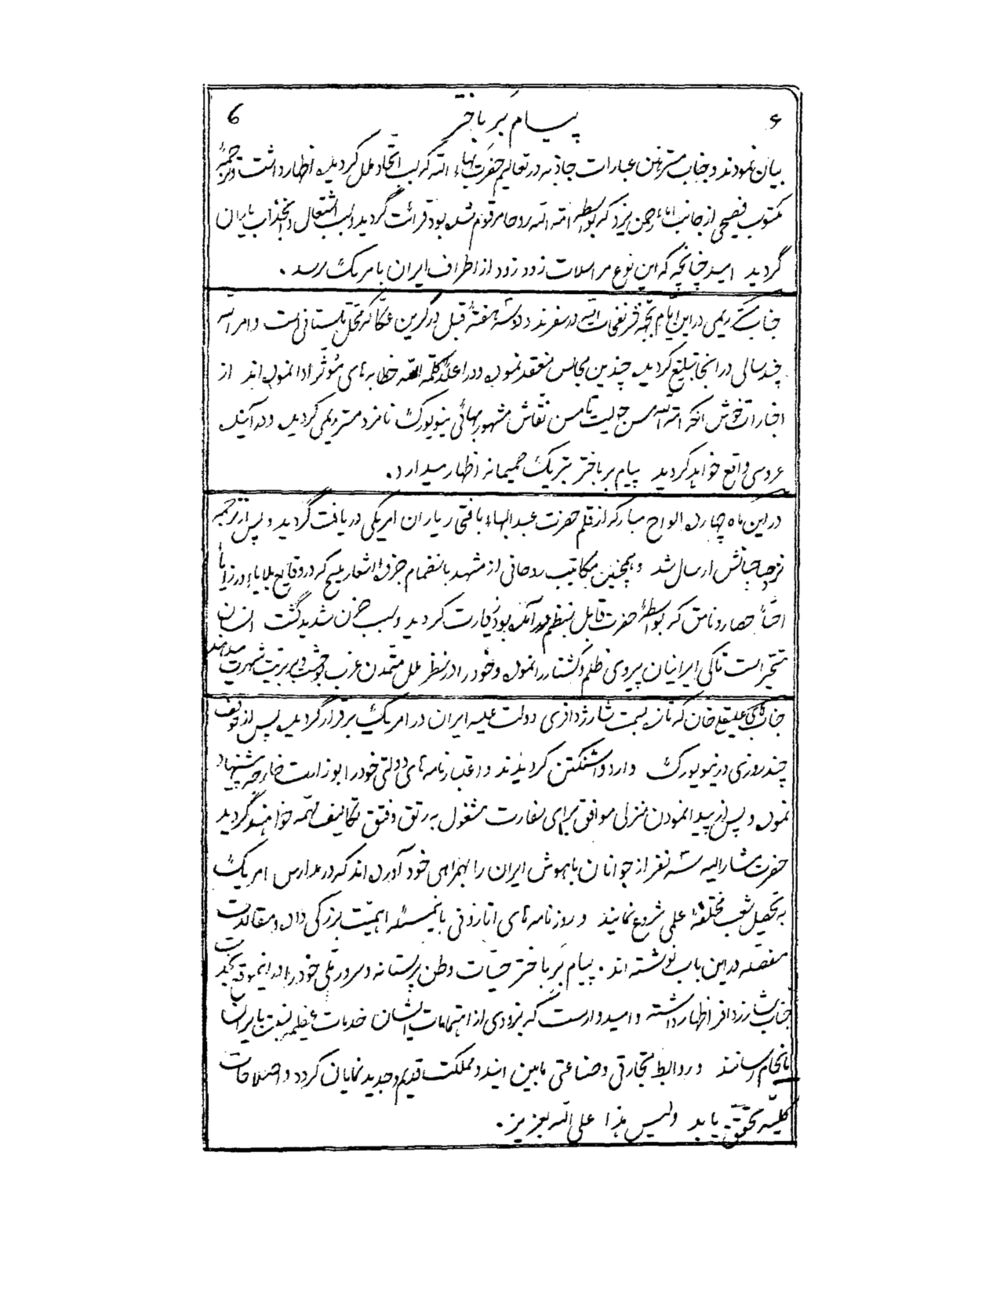 ۶ پیامبر باختر 6
بیان نمودند و جناب مستر عبارات جاذبه در تعالیم حضرت بهاء الله که سبب اتحاد ملل گردیده اظهار داشت و ترجمهٔ
مکتوب فصیحی از جانب اماء رحمن یزد که بواسطه امة الله روحا مرقوم شده بود قرائت گردید و سبب اشتعال و انجذاب یاران
گردید امید چنانچه که این نوع مراسلات زود زود از اطراف ایران بامریک برسد .
جناب ریمی در این ایام بجهة نشر نفحات الله در سفرند و دو سه هفتهٔ قبل در گرین عکا که محل تابستانی است و امر الله
چند سالی در آنجا تبلیغ گردیده چندین مجالس منعقد نموده و در اعلاء کلمة الله خطابه های مؤثر ادا نموده اند از
اخبارات خوش آنکه امة الله مس جولیت تامسن نقاش مشهور بهائی نیویورک نامزد مستر ریمی گردیده و در آینده
عروسی واقع خواهد گردید پیامبر باختر تبریک صمیمانه اظهار میدارد .
در این ماه چهارده الواح مبارکه از قلم حضرت عبدالبهاء بافتخار یاران امریکی دریافت گردید و پس از ترجمه
نزد صاحبانش ارسال شد و همچنین مکاتیب روحانی از مشهد بانضمام جزوهٔ اشعار ملیح که در وقایع بلایاء و رزایا
احبأ حصار و نامق که بواسطهٔ حضرت قابل بنظم در آمده بود زیارت گردید و سبب حزن شدید گشت انسان
متحیر است تا کی ایرانیان پیروی ظلم و کشتار را نموده و خود را در نظر ملل متمدن غرب بوحشت و بربریت شهرت میدهند
جناب علیقلی خان که تازه بسمت شارژدافری دولت علیه ایران در امریک برقرار گردیده پس از توقف
چند روزی در نیویورک وارد واشنگتن گردیدند و اعتبار نامه های دولتی خود را بوزارت خارجه پیشنهاد
نموده و پس از پیدا نمودن منزلی موافق برای سفارت مشغول به رتق و فتق تکالیف مهمه خواهند گردید
حضرت مشارالیه سه نفر از جوانان باهوش ایران را بهمراهی خود آورده اند که در مدارس امریک
به تحصیل شعب مختلفهٔ علمی شروع نمایند و روزنامه های اتازونی باین مسئله اهمیت بزرگی داده و مقالات
مفصله در این باب نوشته اند . پیامبر باختر حسیات وطن پرستانه و سرور ملی خود را در این موقع بخدمت
جناب شارژدافر اظهار داشته و امیدوار است که بزودی از اهتمامات ایشان خدمات عظیمه نسبت بایران
بانجام رسانند و روابط تجارتی و صناعتی مابین این دو مملکت قدیم و جدید نمایان گردد و اصلاحات
کلیه تحقق یابد ولیس هذا علی الله بعزیز .